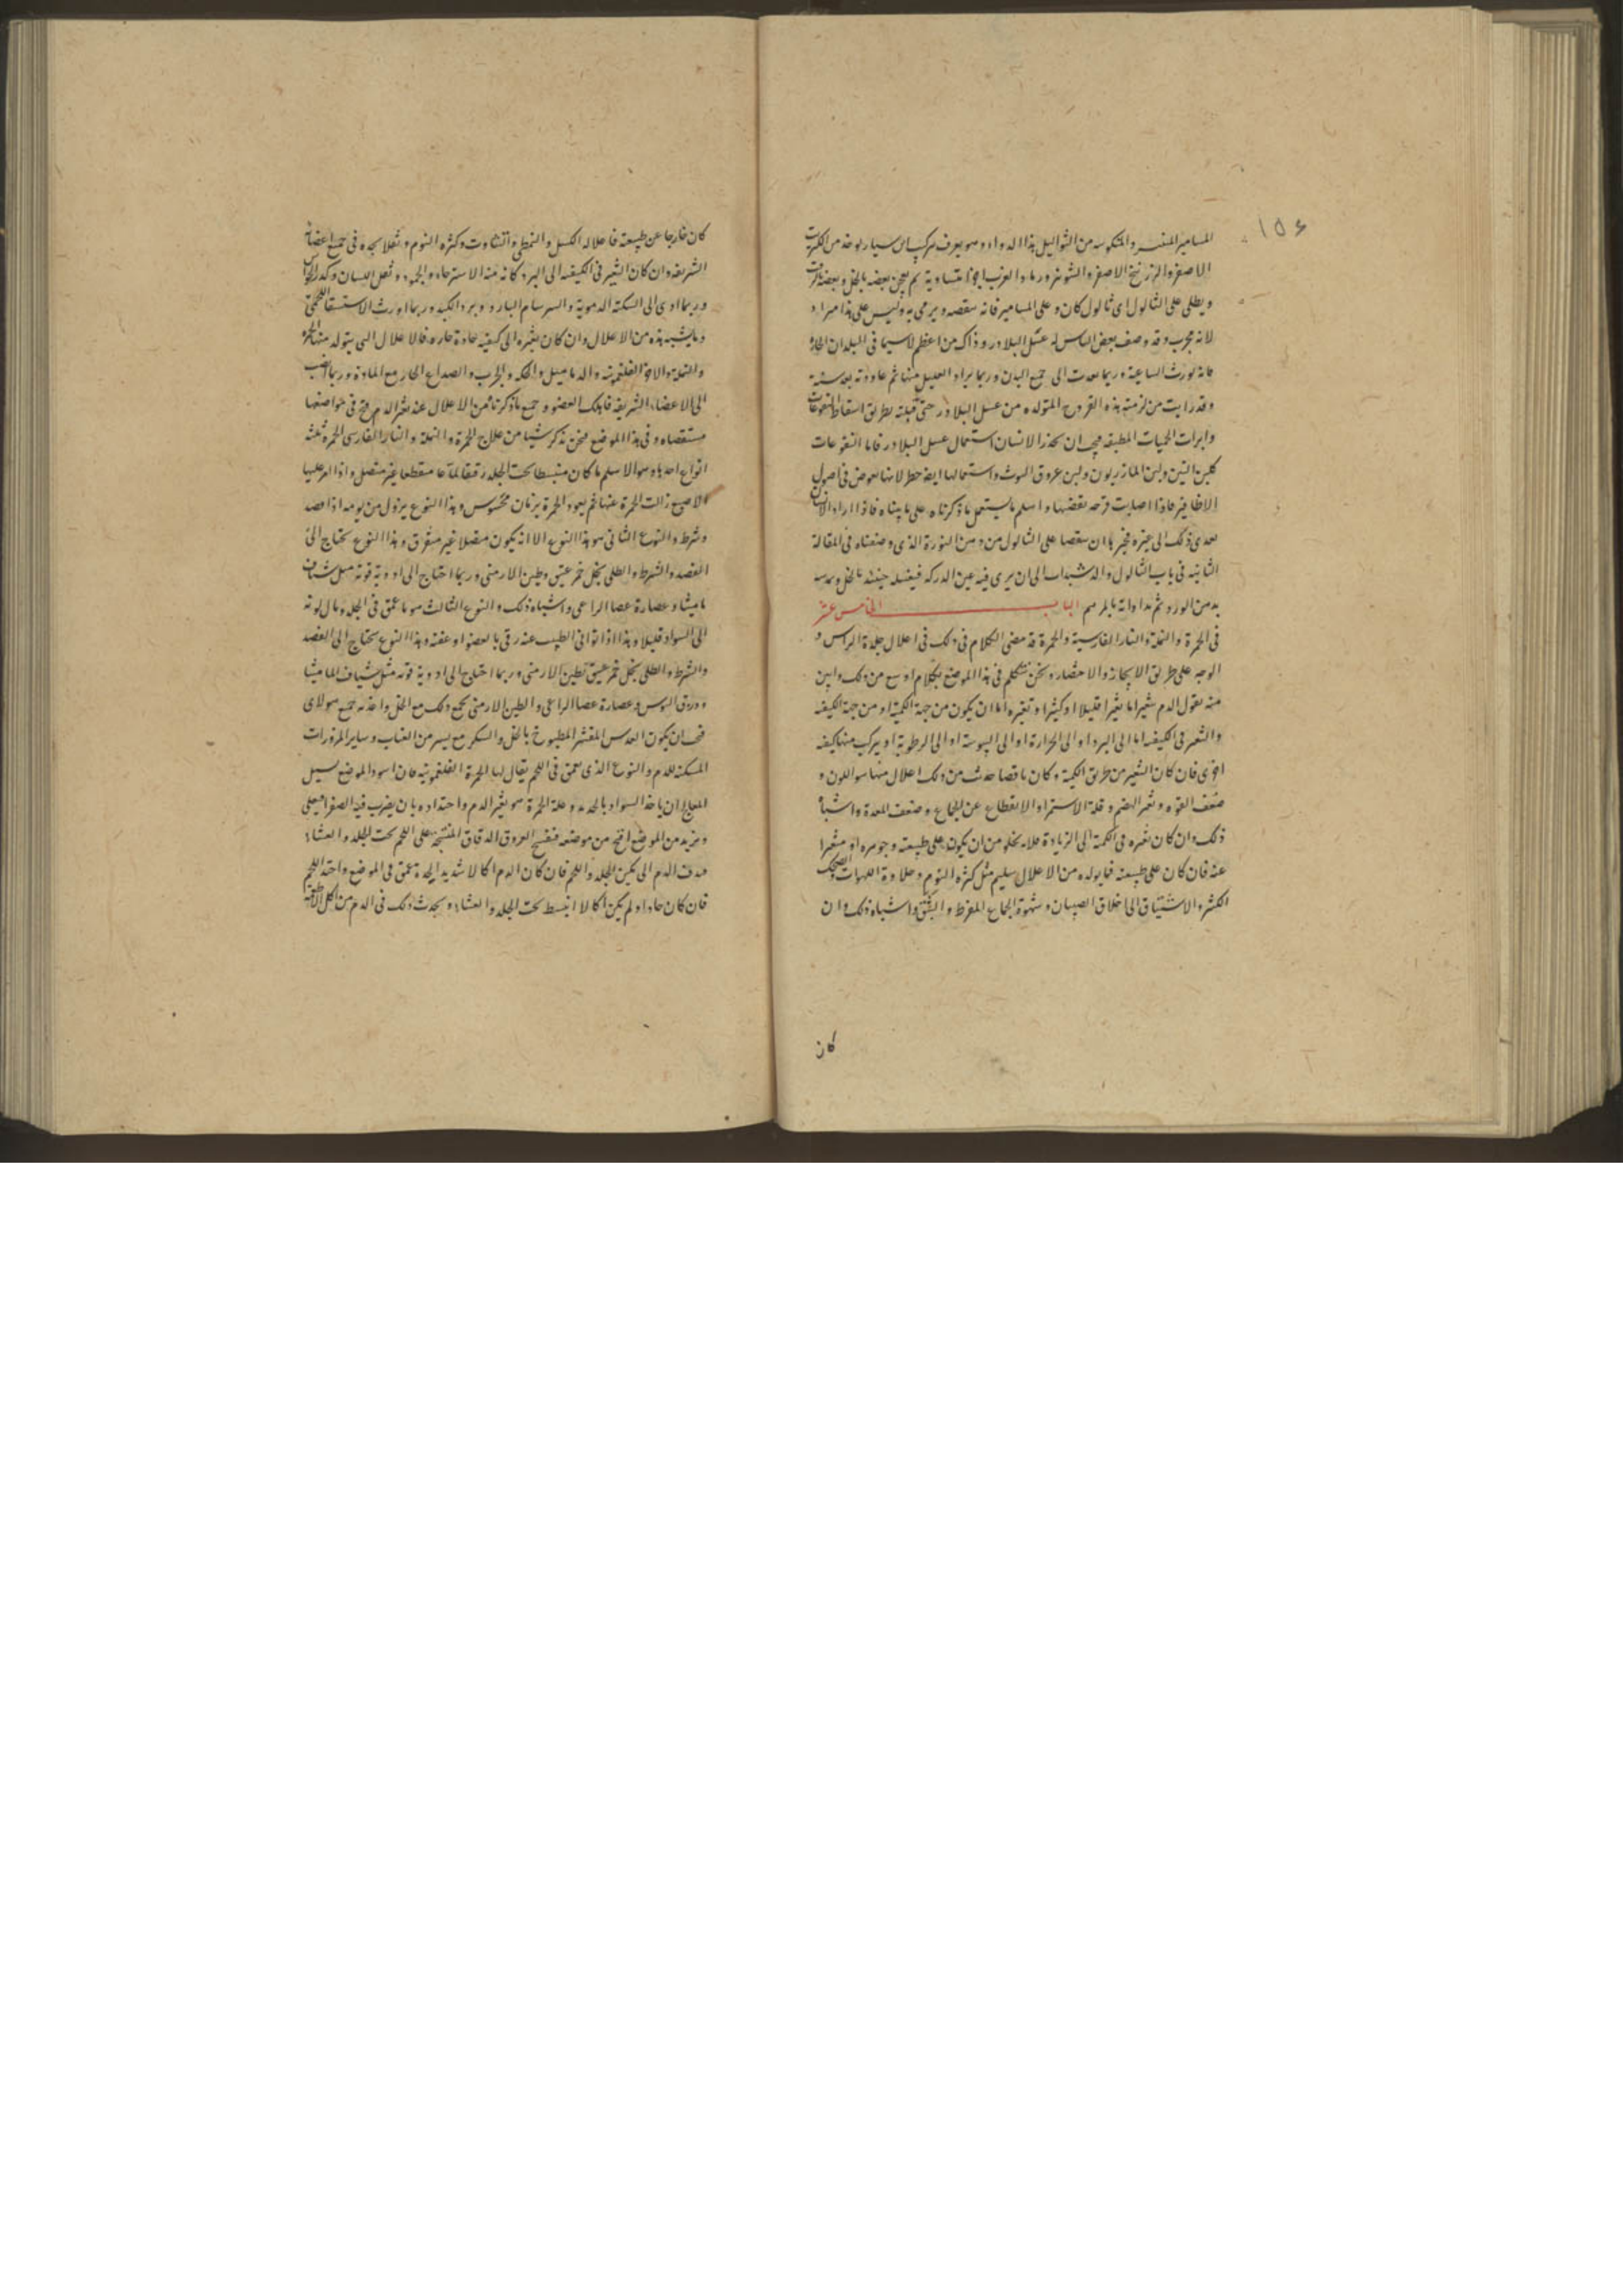 ١٥٤
المسامير المنتسر والمنكوسه من الثواليل بذا الدواء وهو يعرف بتركيب ابن سيار يوخذ من الكبريت
الاصفر والزرنيخ الاصفر والشونيز ورماد العزب اجزا متساوية ثم يعجن بعضه بالخل وبعضه بالزيت
ويطلى على الثالول اى ثالول كان وعلى المسامير فانه يرمى به وليس على هذا مراد
لانه مجرب وقد وصف بعض الناس له عسل البلادر وذاك من اعظم لاسيما فى البلدان الحارة
فانه يورث الساعية وربما سعت الى جميع البدن وربما برا العليل منها ثم عاودته بعد سنة
وقد رايت من لزمته هذه القروح المتولده من عسل البلادر حتى قتلته بطريق اسقاط
الحميات المطبقه فيجب ان يحذر الانسان استعمال عسل البلادر فاما اليتوعات
كلبن التين ولبن المازريون ولبن عروق التوث واستعمالها ايضا خطر لانها تغوص فى اصول
الاظافير فاذا اصابت قرحه واسلم ما يستعمل ما ذكرناه على ما بيناه فاذا اراد الانسان
تعدى ذلك الى غيره فخير ما ان على الثالول من دهن النورة الذى وصفناه فى المقالة
الثانيه فى باب الثالول والى ان يرى فيه عين الدركه فيغسله حينئذ بالخل
بدهن الورد ثم مداواته بالمرهم الباب الخامس عشر
فى الحمرة والنملة والنار الفارسية والجمرة قد مضى الكلام فى ذلك فى اعلال جلدة الراس و
الوجه على طريق الايجاز والاختصار ونحن نتكلم فى هذا الموضع بكلام اوسع من ذلك وابين
منه نقول الدم يتغير اما تغيرا قليلا او كثيرا وتغيره اما ان يكون من جهة الكمية او من جهة الكيفيه
والتغير فى الكيفيه اما الى البرد او الى الحرارة او الى اليبوسة او الى الرطوبة او يتركب منها كيفيه
اخرى فان كان التغير من طريق الكمية وكان ناقصا حدث من ذلك اعلال منها سو اللون و
ضعف القوه وتغير الهضم وقلة الاستمرا والانقطاع عن الجماع وضعف المعدة واشباه
ذلك وان كان تغيره فى الكمية الى الزيادة فلا يخلو من ان يكون على طبيعته وجوهره او متغيرا
عنه فان كان على طبيعته فما يولده من الاعلال سليم مثل كثره النوم وحلاوة اللهوات والضحك
الكثير والاشتياق الى اخلاق الصبيان وشهوة الجماع المفرط والشبق واشباه ذلك وان
كان
كان خارجا عن طبيعته فاعلاله الكسل والتمطى والتثاوب وكثره النوم وثقلا يجده فى جميع اعضائه
الشريفه وان كان التغير فى الكيفيه الى البرد كان منه الاسترخاء والجمود وثقل اللسان وكدر الحواس
وربما ادى الى السكته الدموية والسرسام البارد وبرد الكبد وربما اورث الاستسقا اللحمى
وما يشبه هذه من الاعلال وان كان تغيره الى كيفيه حادة حاره فالاعلال التى يتولد منها الحمرة
والنملة والفلغمونيه والدماميل والحكه والجرب والصداع الحار مع المادة وربما انصب
الى الاعضاء الشريفه فاهلك العضو وجميع ما ذكرناه من الاعلال عند تغير الدم فى مواضعها
مستقصاه وفى هذا الموضع فنحن نذكر شيا من علاج الحمرة والنملة والنار الفارسى الحمرة ثلثة
انواع احدها وهو الاسلم ما كان منبسطا تحت الجلد رقيقا لماعا منقطعا غير متصل واذا امر عليها
الاصبع زالت الحمرة عنها ثم يعود الحمرة بزمان محسوس وهذا النوع يزول من يومه اذا فصد
وشرط والنوع الثانى هو هذا النوع الا انه يكون متصلا غير متفرق وهذا النوع يحتاج الى
الفصد والشرط والطلى بخل خمر عتيق وطين الارمنى وربما احتاج الى ادوية قويه مثل شياف
ماميثا وعصارة عصا الراعى واشباه ذلك والنوع الثالث هو ما عمق فى الجلد ومال لونه
الى السواد قليلا وهذا اذا توانى الطبيب عنه العضو او عفنه وهذا النوع يحتاج الى الفصد
والشرط والطلى بخل خمر عتيق بطين الارمنى وربما احتاج الى ادوية قويه مثل شياف الماميثا
وعصارة عصا الراعى والطين الارمنى يجمع ذلك مع الخل
فيجب ان يكون العدس المقشر المطبوخ بالخل والسكر مع يسير من العناب وساير المزورات
المسكنة للدم والنوع الذى يعمق فى اللحم يقال لها الحمرة الفلغمونيه فان اسود الموضع سبيل
المعالج ان ياخذ السواد بالحديد وعلة الحمرة هو تغير الدم واحتداده بان يضرب فيه الصفرا فيغلى
ويزيد من الموضع من موضعه فتفتح العروق الدقاق على اللحم تحت الجلد والغشاء
الدم الى بين الجلد واللحم فان كان الدم اكالا شديد الحدة عمق فى الموضع واخذ اللحم
فان كان حادا ولم يكن اكالا انبسط تحت الجلد والغشاء ويحدث ذلك فى الدم من